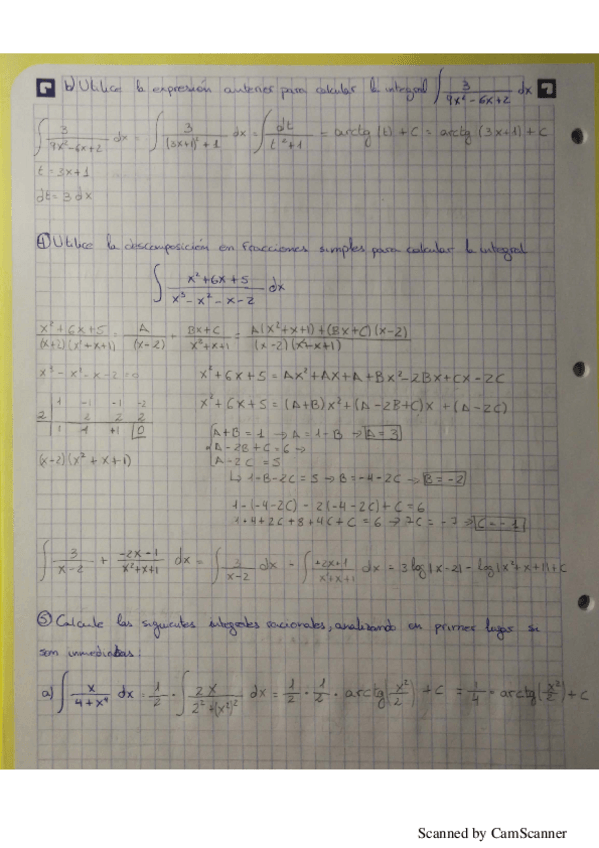 b) Utilice la expresión anterior para calcular la integral ∫ 3/(9x²-6x+2) dx
∫ 3/(9x²-6x+2) dx = ∫ 3/((3x+1)²+1) dx = ∫ dt/(t²+1) = arctg (t) + C = arctg (3x+1) + C
t = 3x+1
dt = 3 dx
④ Utilice la descomposición en fracciones simples para calcular la integral
∫ (x²+6x+5)/(x³-x²-x-2) dx
(x²+6x+5)/((x+2)(x²+x+1)) = A/(x-2) + (Bx+C)/(x²+x+1) = (A(x²+x+1)+(Bx+C)(x-2))/((x-2)(x²+x+1))
x³-x²-x-2=0
x²+6x+5 = Ax²+Ax+A+Bx²-2Bx+Cx-2C
1 -1 -1 -2
x²+6x+5 = (A+B)x²+(A-2B+C)x+(A-2C)
2 2 2 2
1 1 +1 0
A+B=1 → A=1-B → A=3
A-2B+C=6 →
(x-2)(x²+x+1)
A-2C=5
↳ 1-B-2C=5 → B=-4-2C → B=-2
1-(-4-2C)-2(-4-2C)+C=6
1+4+2C+8+4C+C=6 → 7C=-7 → C=-1
∫ 3/(x-2) + (-2x-1)/(x²+x+1) dx = ∫ 3/(x-2) dx - ∫ (+2x+1)/(x²+x+1) dx = 3 log|x-2| - log|x²+x+1| + C
⑤ Calcule las siguientes integrales racionales, analizando en primer lugar si
son inmediatas:
a) ∫ x/(4+x⁴) dx = 1/2 · ∫ 2x/(2²+(x²)²) dx = 1/2 · 1/2 · arctg(x²/2) + C = 1/4 · arctg(x²/2) + C
Scanned by CamScanner